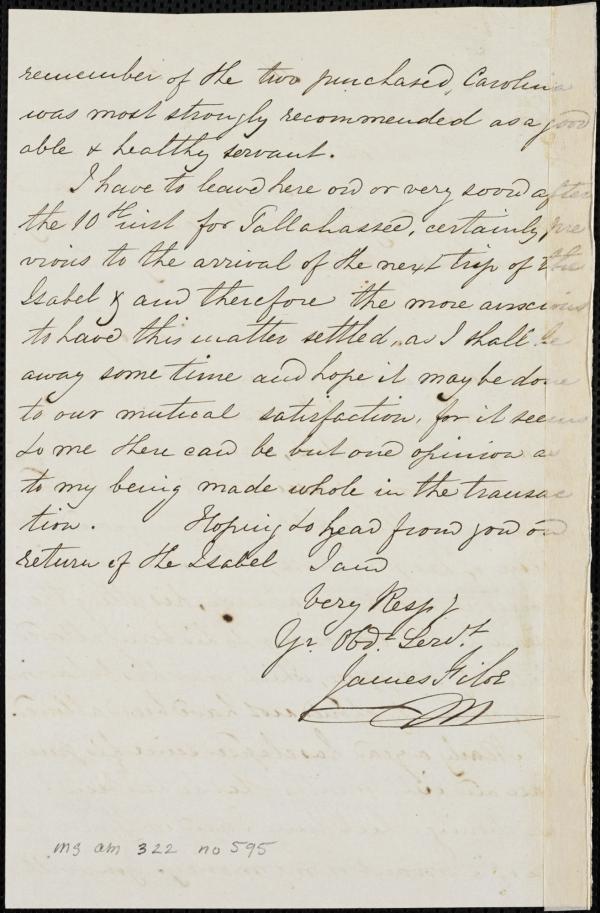 remember of the two purchased, Carolina
was most strongly recommended as a good
able & healthy servant.
I have to leave here on or very soon after
the 10th inst for Tallahassee, certainly pre
vious to the arrival of the next trip of the
Isabel & and therefore the more anxious
to have this matter settled, as I shall be
away some time and hope it may be done
to our mutual satisfaction, for it seems
to me there can be but one opinion as
to my being made whole in the transac
tion. Hoping to hear from you on
return of the Isabel I am
Very Respy
Yr. Obdt Servt.
James Filor
ms am 322 no 595